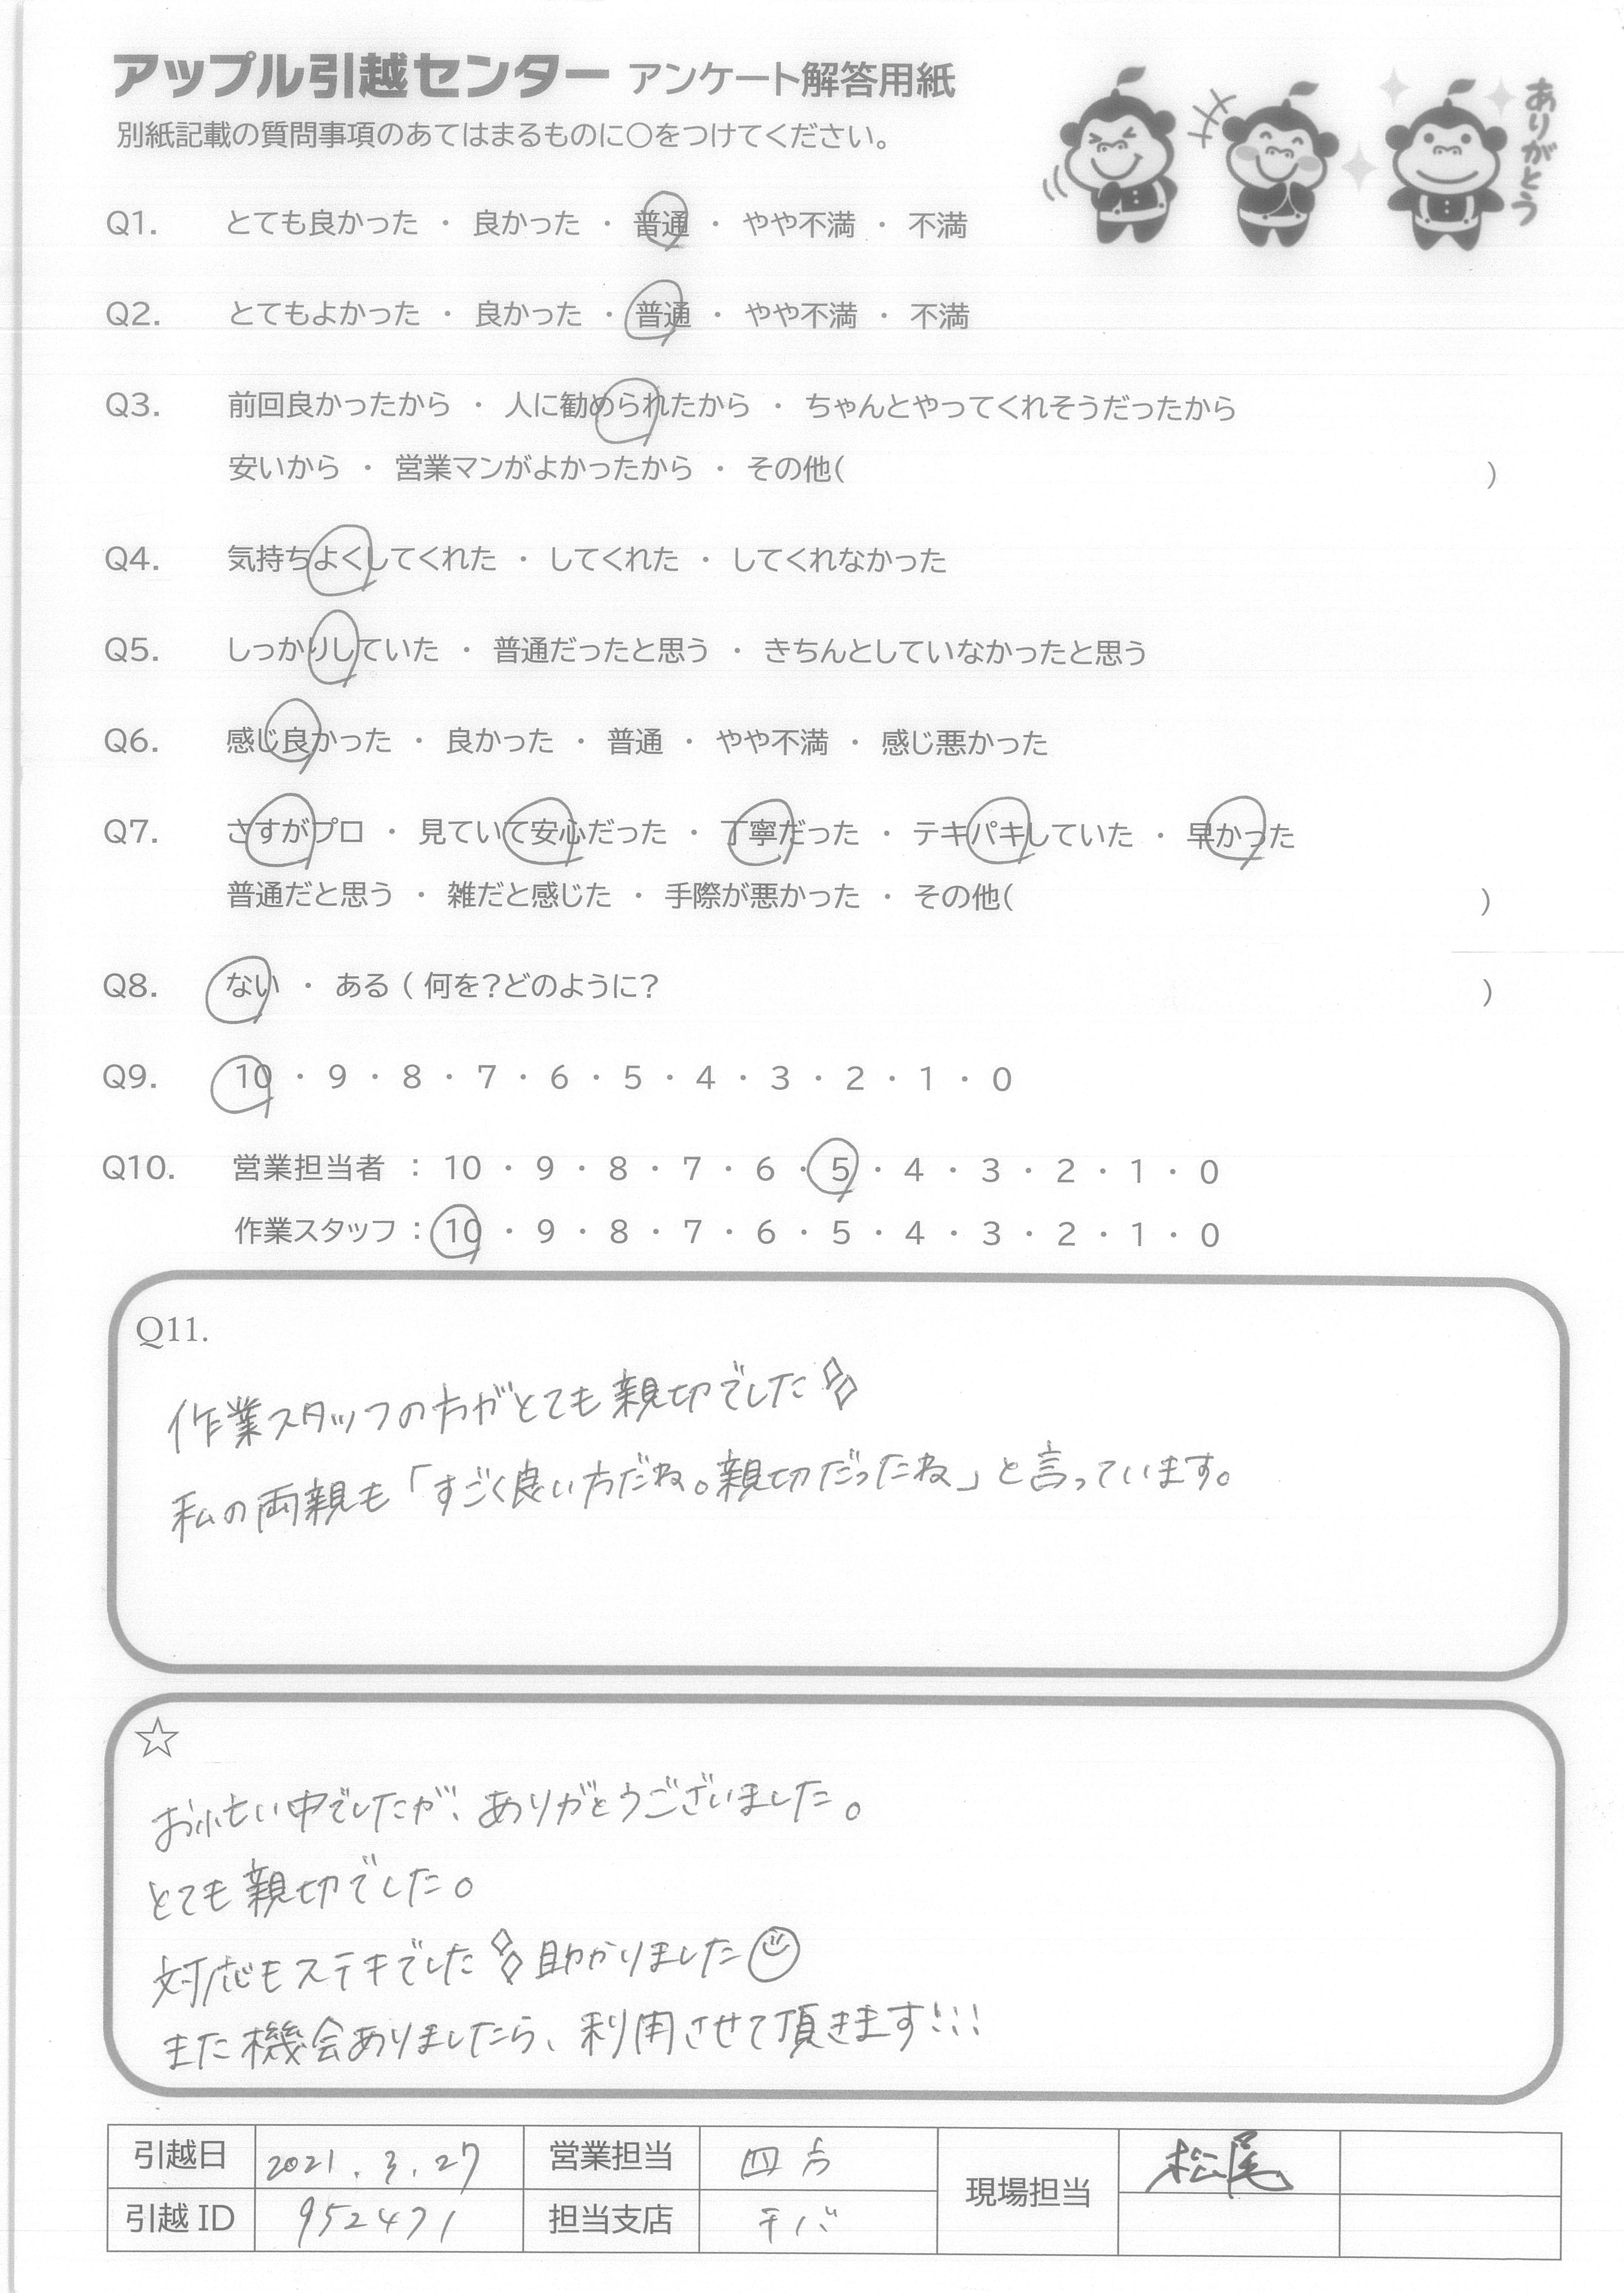 アップル引越センター アンケート解答用紙
別紙記載の質問事項のあてはまるものに○をつけてください。
ありがとう
Q1. とても良かった ・ 良かった ・ 普通 ・ やや不満 ・ 不満
Q2. とてもよかった ・ 良かった ・ 普通 ・ やや不満 ・ 不満
Q3. 前回良かったから ・ 人に勧められたから ・ ちゃんとやってくれそうだったから
安いから ・ 営業マンがよかったから ・ その他( )
Q4. 気持ちよくしてくれた ・ してくれた ・ してくれなかった
Q5. しっかりしていた ・ 普通だったと思う ・ きちんとしていなかったと思う
Q6. 感じ良かった ・ 良かった ・ 普通 ・ やや不満 ・ 感じ悪かった
Q7. さすがプロ ・ 見ていて安心だった ・ 丁寧だった ・ テキパキしていた ・ 早かった
普通だと思う ・ 雑だと感じた ・ 手際が悪かった ・ その他( )
Q8. ない ・ ある ( 何を?どのように? )
Q9. 10 ・ 9 ・ 8 ・ 7 ・ 6 ・ 5 ・ 4 ・ 3 ・ 2 ・ 1 ・ 0
Q10. 営業担当者 : 10 ・ 9 ・ 8 ・ 7 ・ 6 ・ 5 ・ 4 ・ 3 ・ 2 ・ 1 ・ 0
作業スタッフ : 10 ・ 9 ・ 8 ・ 7 ・ 6 ・ 5 ・ 4 ・ 3 ・ 2 ・ 1 ・ 0
Q11.
作業スタッフの方がとても親切でした
私の両親も「すごく良い方だね。親切だったね」と言っています。
☆
お忙しい中でしたが、ありがとうございました。
とても親切でした。
対応もステキでした 助かりました
また機会ありましたら、利用させて頂きます!!!
引越日 2021.3.27 営業担当 現場担当 松尾
引越ID 952471 担当支店 千バ